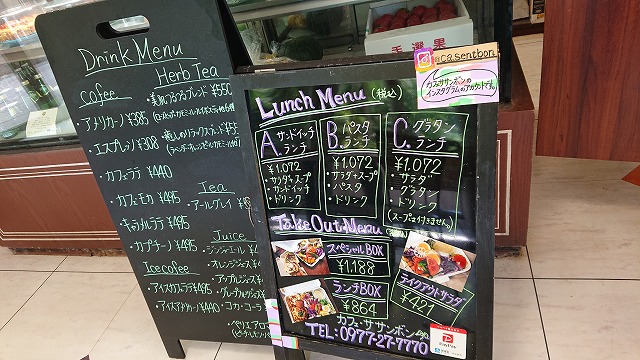 Drink Menu
coffee
・アメリカーノ ¥385
・エスプレッソ ¥308
・カフェラテ ¥440
・カフェモカ ¥495
・キャラメルラテ ¥495
・カプチーノ ¥495
Ice coffee
・アイスカフェラテ ¥495
・アイスアメリカーノ ¥440
Herb Tea
Tea
・アールグレイ
Juice
・ジンジャーエール
・オレンジジュース
・アップルジュース
・コカ・コーラ
@casentbon
カフェササンボンの
インスタグラムのアカウントです。
Lunch Menu (税込)
A. サンドイッチ
ランチ
¥1.072
・サラダ+スープ
・サンドイッチ
・ドリンク
B. パスタ
ランチ
¥1.072
・サラダ+スープ
・パスタ
・ドリンク
C. グラタン
ランチ
¥1.072
・サラダ
・グラタン
・ドリンク
(スープは付きません。)
Take Out Menu
スペシャルBOX
¥1.188
ランチBOX
¥864
テイクアウトサラダ
¥421
カフェ・ササンボン
TEL: 0977-27-7770